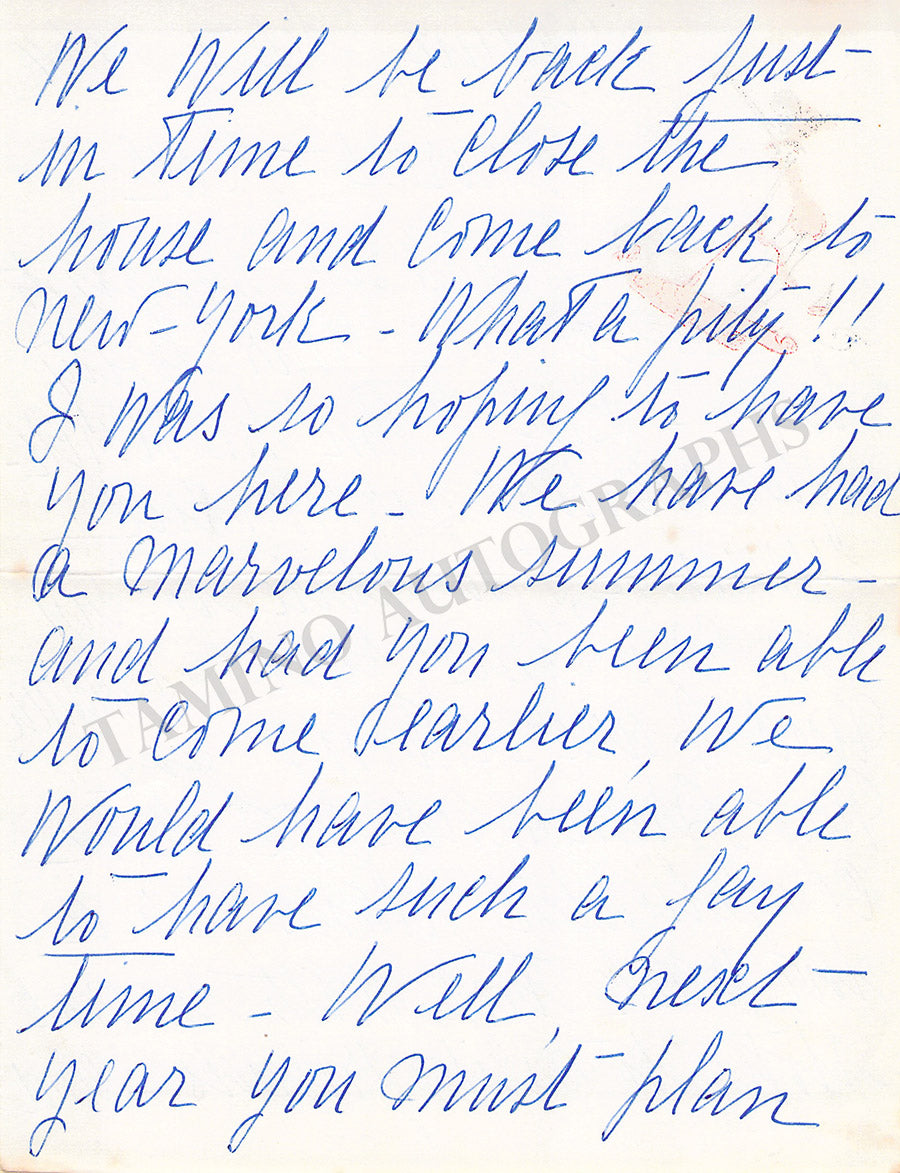 We Will be back just
in time to close the
house and come back to
new-york - What a pity!!
I was so hoping to have
you here - We have had
a marvelous summer -
and had you been able
to come earlier, We
Would have been able
to have such a gay
time - Well, next
year you must plan
TAMINO AUTOGRAPHS